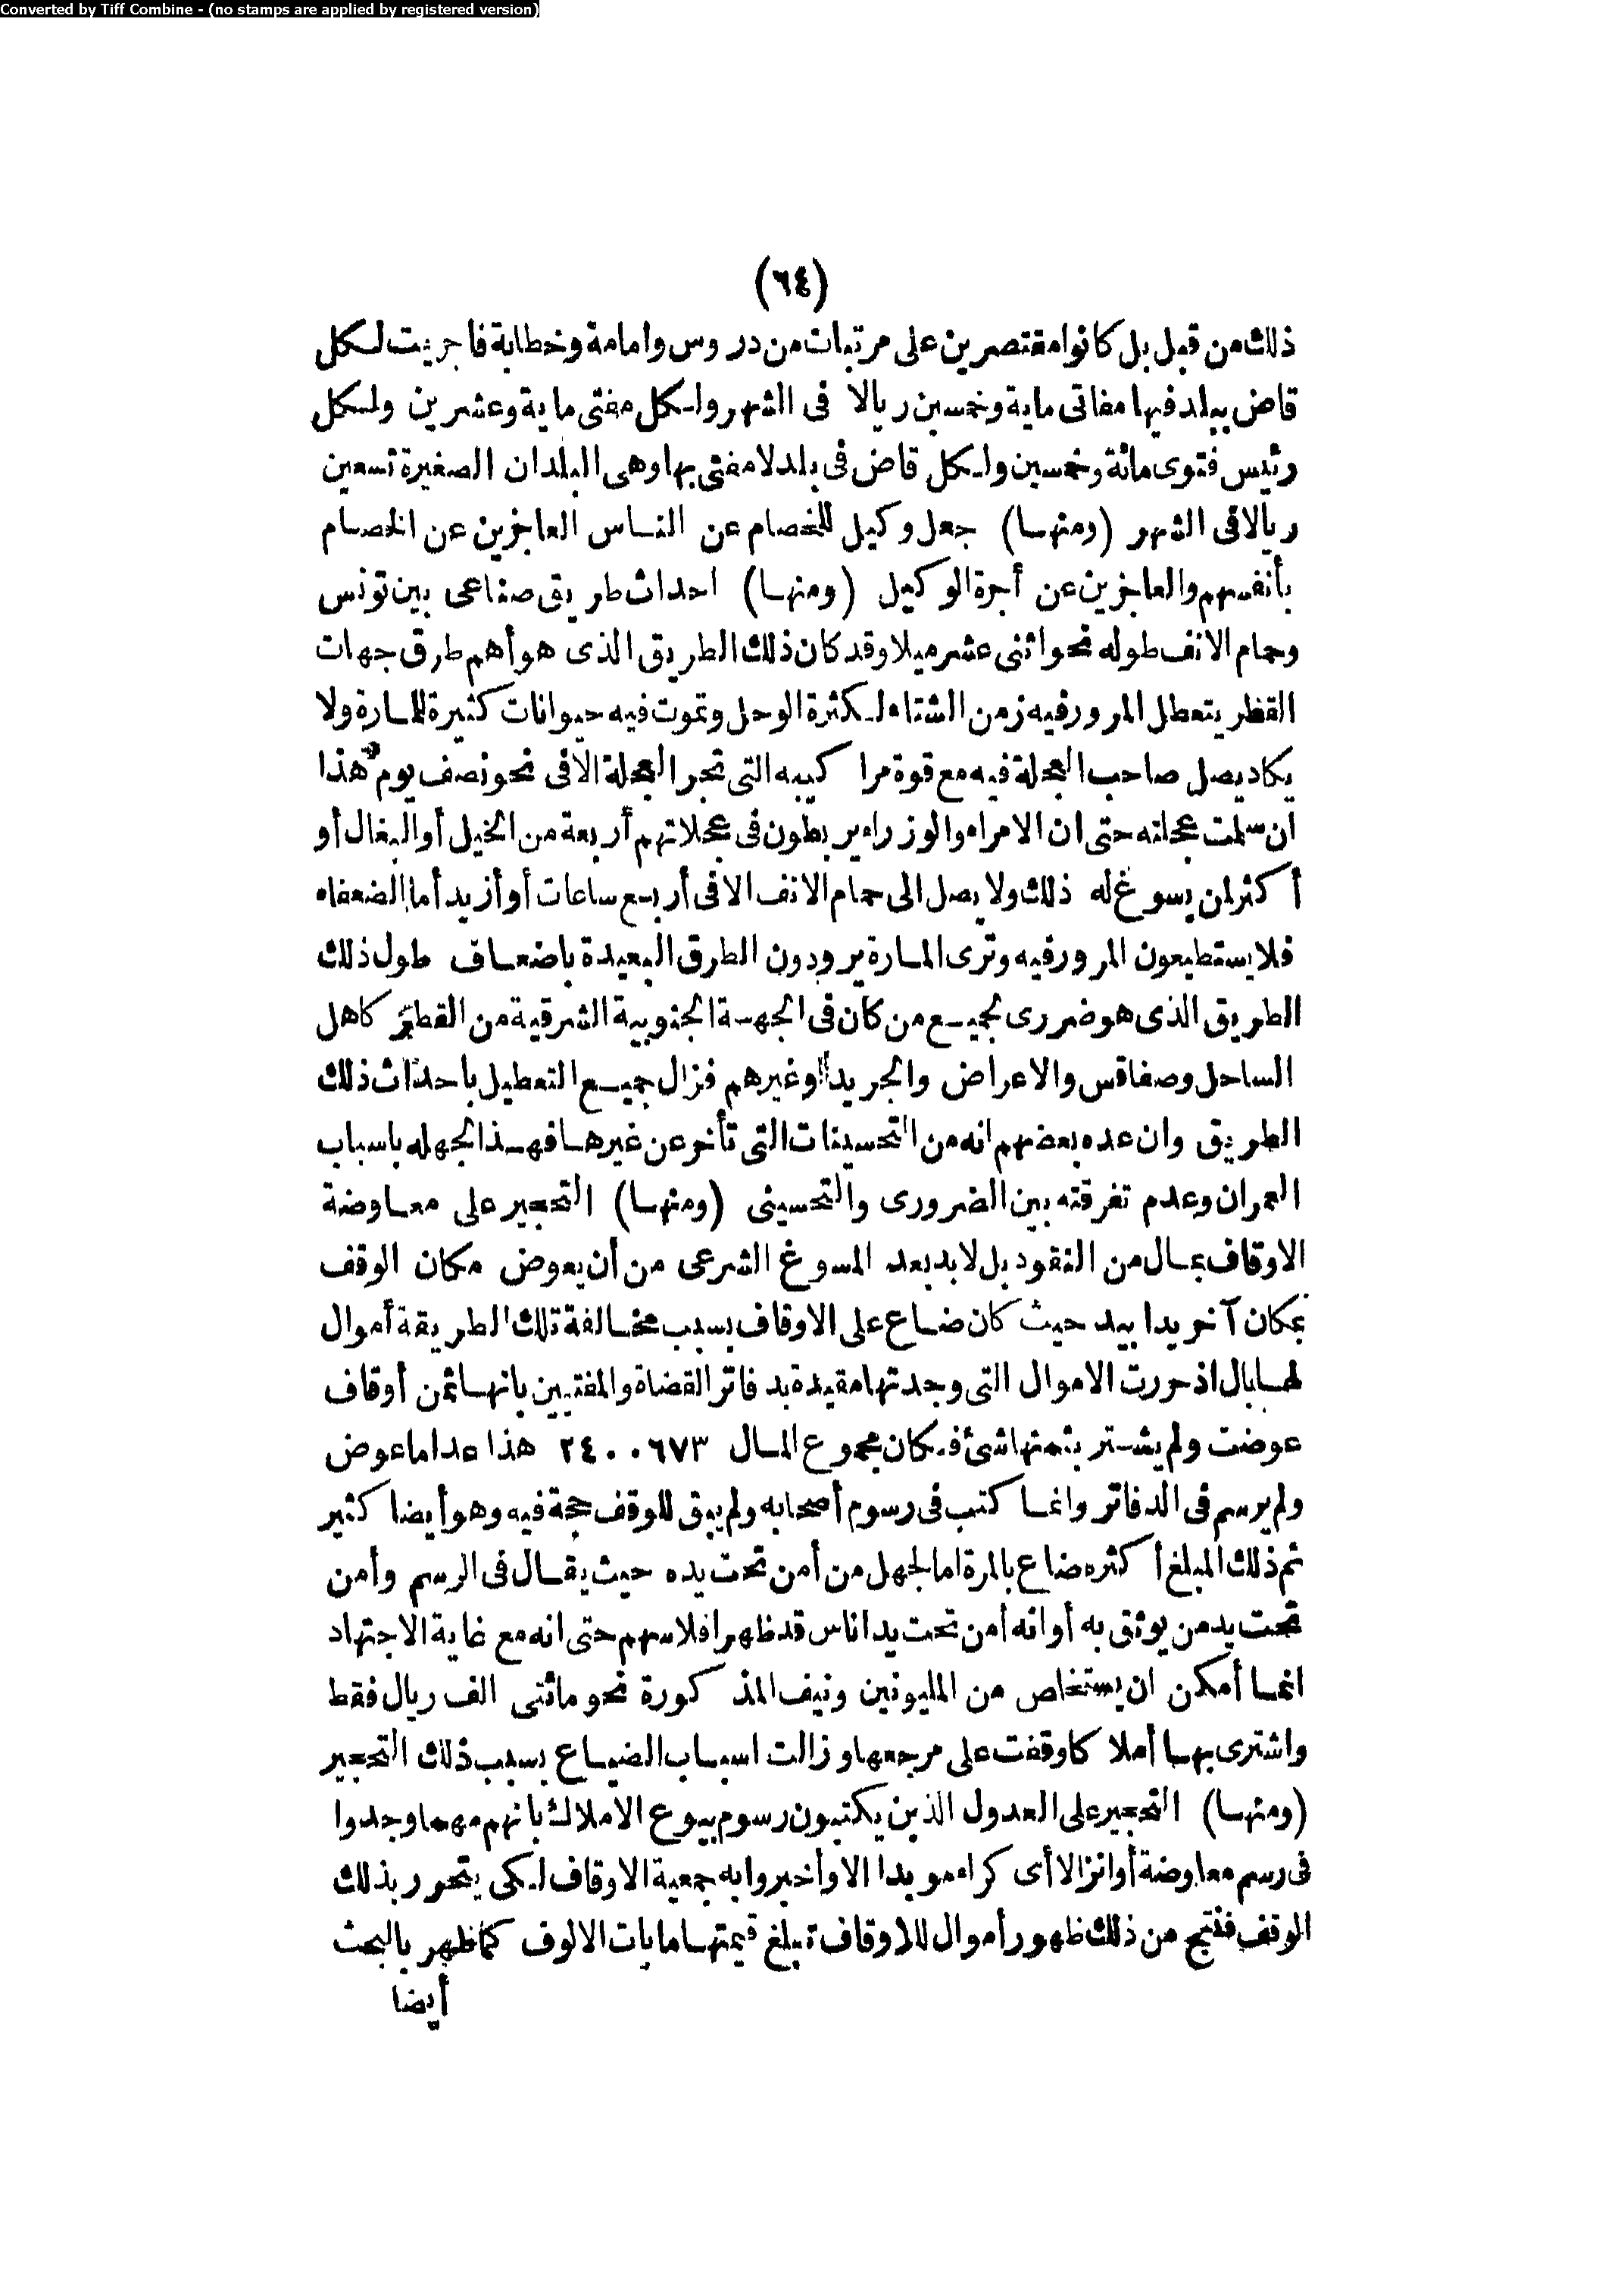 Converted by Tiff Combine - (no stamps are applied by registered version)
(٦٤)
ذلك من قبل بل كانوا مقتصرين على مرتبات من دروس وامامة وخطابة فاجريت لكل
قاض ببلد فيها مفاتى ماية وخمسين ريالا فى الشهر ولكل مفتى ماية وعشرين ولكل
رئيس فتوى مائة وخمسين ولكل قاض فى بلد لا مفتى بها وهى البلدان الصغيرة تسعين
ريالا فى الشهر (ومنها) جعل وكيل للخصام عن الناس العاجزين عن الخصام
بأنفسهم والعاجزين عن أجرة الوكيل (ومنها) احداث طريق صناعى بين تونس
وحمام الانف طوله نحو اثنى عشر ميلا وقد كان ذلك الطريق الذى هو أهم طرق جهات
القطر يتعطل المرور فيه زمن الشتاء لكثرة الوحل وتموت فيه حيوانات كثيرة للمارة ولا
يكاد يصل صاحب العجلة فيه مع قوة مراكيبه التى تجر العجلة الا فى نحو نصف يوم هذا
ان سلمت عجلته حتى ان الامراء والوزراء يربطون فى عجلاتهم أربعة من الخيل أو البغال أو
أكثر لمن يسوغ له ذلك ولا يصل الى حمام الانف الا فى أربع ساعات أو أزيد أما الضعفاء
فلا يستطيعون المرور فيه وترى المارة يرودون الطرق البعيدة باضعاف طول ذلك
الطريق الذى هو ضررى لجميع من كان فى الجهة الجنوبية الشرقية من القطر كاهل
الساحل وصفاقس والاعراض والجريد وغيرهم فزال جميع التعطيل باحداث ذلك
الطريق وان عده بعضهم انه من التحسينات التى تأخر عن غيرها فهذا لجهله باسباب
العمران وعدم تفرقته بين الضرورى والتحسينى (ومنها) التحجير على معاوضة
الاوقاف بمال من النقود بل لا بد بعد المسوغ الشرعى من أن يعوض مكان الوقف
بمكان آخر يدا بيد حيث كان ضاع على الاوقاف بسبب مخالفة تلك الطريقة أموال
لها بال اذ حررت الاموال التى وجدتها مقيدة بدفاتر القضاة والمفتيين بانها ثمن أوقاف
عوضت ولم يشتر بثمنها شئ فكان مجموع المال ٢٤٠٠٦٧٣ هذا عدا ما عوض
ولم يرسم فى الدفاتر وانما كتب فى رسوم أصحابه ولم يبق للوقف حجة فيه وهو أيضا كثير
ثم ذلك المبلغ أكثره ضاع بالمرة اما لجهل من أمن تحت يده حيث يقال فى الرسم وأمن
تحت يد من يوثق به أو انه أمن تحت يد اناس قد ظهر افلاسهم حتى انه مع غاية الاجتهاد
انما أمكن ان يستخلص من المليونين ونيف المذكورة نحو مائتى الف ريال فقط
واشترى بها أملاكا وقفت على مرجعها وزالت اسباب الضياع بسبب ذلك التحجير
(ومنها) التحجير على العدول الذين يكتبون رسوم بيوع الاملاك بانهم مهما وجدوا
فى رسم معاوضة أو انزالا أى كراء موبدا الا وأخبروا به جمعية الاوقاف لكى يتحرر بذلك
الوقف فنتج من ذلك ظهور أموال للاوقاف تبلغ قيمتها مايات الالوف كما ظهر بالبحث
أيضا